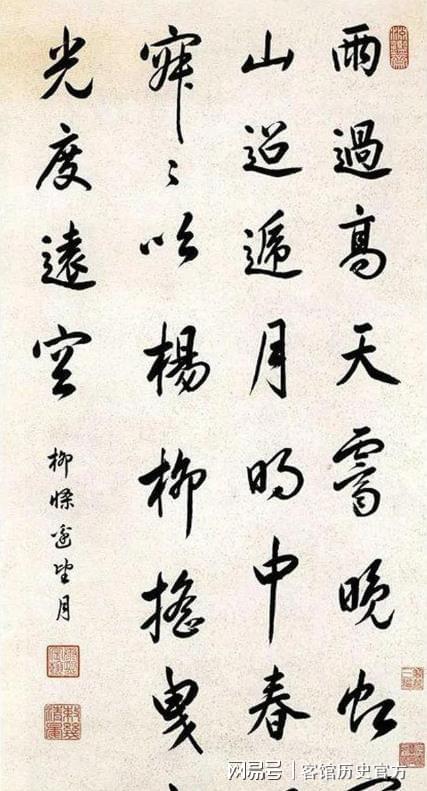 雨過高天霽晚虹
山迢遞月明中春
寂〻吹楊柳搖曳
光度遠空
柳條邊望月
网易号 | 客馆历史官方